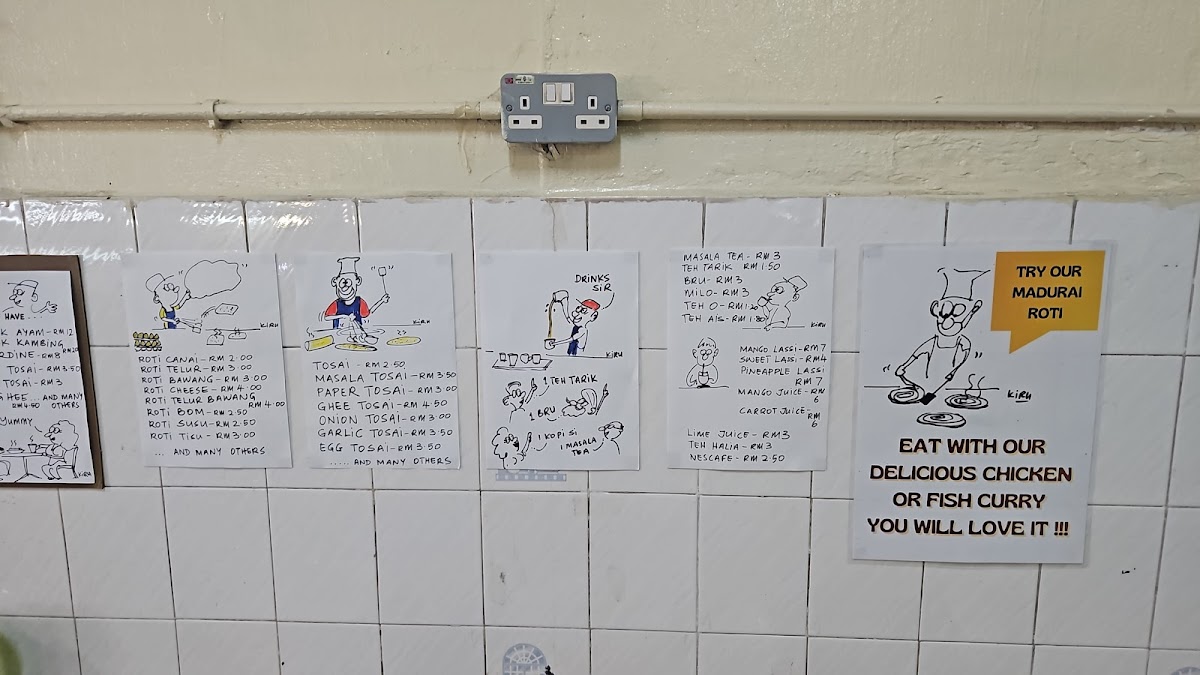 HAVE...
K AYAM - RM 12
K KAMBING
RM 20
RDINE - RM 8
TOSAI - RM 3.50
TOSAI - RM 3
GHEE ... AND MANY
RM 4.50 OTHERS
YUMMY
KIRU
KIRU
ROTI CANAI - RM 2.00
ROTI TELUR - RM 3.00
ROTI BAWANG - RM 3.00
ROTI CHEESE - RM 4.00
ROTI TELUR BAWANG
RM 4.00
ROTI BOM - RM 2.50
ROTI SUSU - RM 2.50
ROTI TISU - RM 3.00
... AND MANY OTHERS
KIRU
TOSAI - RM 2.50
MASALA TOSAI - RM 3.50
PAPER TOSAI - RM 3.00
GHEE TOSAI - RM 4.50
ONION TOSAI - RM 3.00
GARLIC TOSAI - RM 3.00
EGG TOSAI - RM 3.50
..... AND MANY OTHERS
DRINKS
SIR
KIRU
1 TEH TARIK
1 BRU
1 KOPI SI
1 MASALA
TEA
KIRU
MASALA TEA - RM 3
TEH TARIK RM 1.50
BRU - RM 3
MILO - RM 3
TEH O - RM 1.20
TEH AIS - RM 1.80
KIRU
MANGO LASSI - RM 7
SWEET LASSI - RM 4
PINEAPPLE LASSI
RM 7
MANGO JUICE - RM
6
CARROT JUICE -
RM
6
LIME JUICE - RM 3
TEH HALIA - RM 3
NESCAFE - RM 2.50
TRY OUR
MADURAI
ROTI
KIRU
EAT WITH OUR
DELICIOUS CHICKEN
OR FISH CURRY
YOU WILL LOVE IT !!!